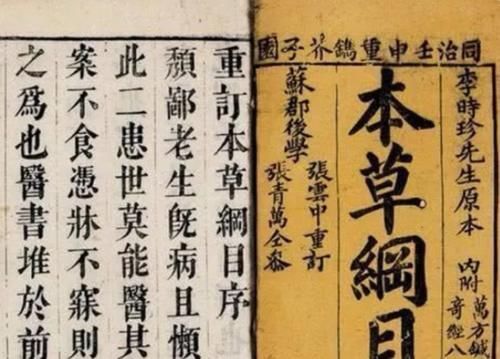 同治壬申重鐫芥子園
李時珍先生原本
內附
萬方鍼
奇經八
本草綱目
蘇郡後學
張雲中重訂
張青萬仝參
重訂本草綱目序
頽鄙老生旣病且懶
此二患世莫能醫其
案不食憑牀不寐則
之爲也醫書堆於前